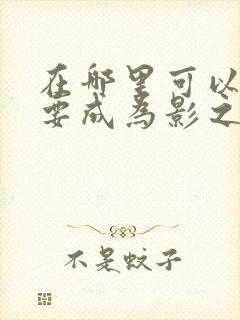 在哪里可以
要成为影之
不是蚊子